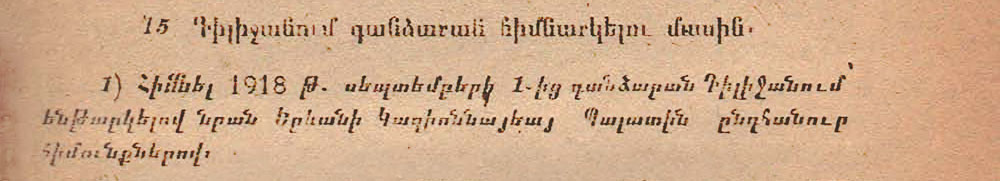 15 Դիլիջանում գանձարան հիմնարկելու մասին.
1) Հիմնել 1918 թ. սեպտեմբերի 1-ից գանձարան Դիլիջանում՝
ենթարկելով նրան Երևանի Կազիոննայեայ Պալատին ընդհանուր
հիմունքներով.